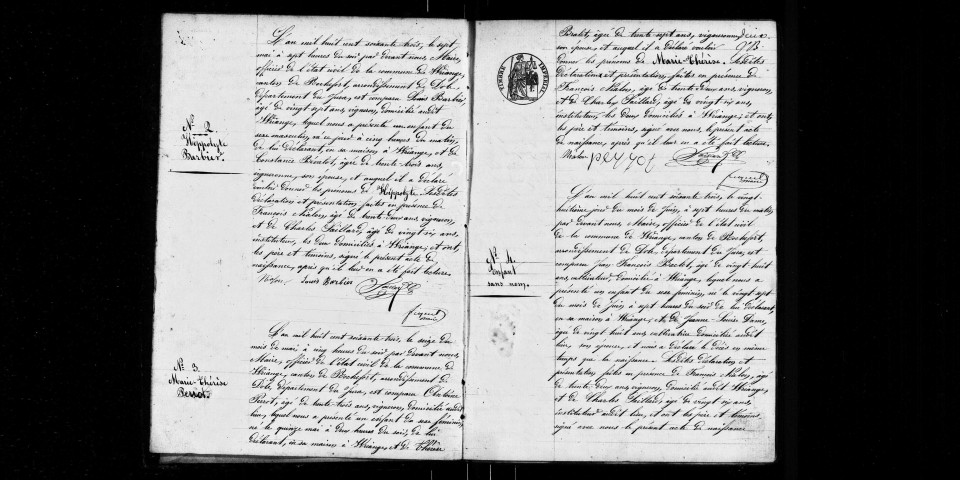 L'an mil huit cent soixante trois, le sept
mai à sept heures du soir par devant nous, Maire,
officier de l'état civil de la commune de Wriange,
canton de Rochefort, arrondissement de Dole,
département du Jura, est comparu Louis Barbier,
âgé de vingt sept ans, vigneron, domicilié audit
Wriange, lequel nous a présenté un enfant du
sexe masculin, né ce jourd' à cinq heures du matin,
de lui déclarant, en sa maison à Wriange, et de
Constance Prénlot, âgée de trente trois ans,
vigneronne, son épouse, et auquel il a déclaré
vouloir donner les prénoms de Hippolyte. Lesdites
déclaration et présentation faites en présence de
François Nalor, âgé de trente deux ans, vigneron,
et de Charles Saillard, âgé de vingt six ans,
instituteur, les deux domiciliés à Wriange; et ont,
les père et témoins, signé le présent acte de
naissance, après qu'il leur en a été fait lecture.
Louis Barbier
N° 2
Hippolyte
Barbier.
L'an mil huit cent soixante trois, le seize du
mois de mai à cinq heures du soir par devant nous,
Maire, officier de l'état civil de la commune de
Wriange, canton de Rochefort, arrondissement de
Dole, département du Jura, est comparu
Perrot, âgé de trente trois ans, vigneron, domicilié audit
lieu, lequel nous a présenté un enfant du sexe féminin,
né le quinze mai à deux heures du soir, de lui
déclarant, en sa maison à Wriange, et de Thérèse
N° 3.
Marie-Thérèse
Perrot.
âgée de trente sept ans, vigneronne,
son épouse, et auquel il a déclaré vouloir
donner les prénoms de Marie-Thérèse. Lesdites
déclaration et présentation, faites en présence de
François Nalor, âgé de trente deux ans, vigneron,
et de Charles Saillard, âgé de vingt six ans,
instituteur, les deux domiciliés à Wriange; et ont,
les père et témoins, signé avec nous, le présent acte
de naissance, après qu'il leur en a été fait lecture.
TIMBRE IMPERIAL
L'an mil huit cent soixante trois, le vingt
huitième jour du mois de juin, à sept heures du matin,
par devant nous, Maire, officier de l'état civil
de la commune de Wriange, canton de Rochefort,
arrondissement de Dole, département du Jura, est
comparu Jean François âgé de vingt huit
ans, cultivateur, domicilié à Wriange, lequel nous a
présenté un enfant du sexe féminin, né le vingt sept
du mois de juin à sept heures du soir de lui déclarant,
en sa maison à Wriange, et de Jeanne Louise
âgée de vingt huit ans, cultivatrice domiciliée audit
lieu, son épouse, et nous a déclaré le décès en même
temps que la naissance. Lesdites déclaration et
présentation faites en présence de François Nalor, âgé
de trente deux ans, vigneron, domicilié audit Wriange,
et de Charles Saillard, âgé de vingt six ans,
instituteur audit lieu, et ont les père et témoins,
signé avec nous le présent acte de naissance
N° 4.
Enfant
sans nom.